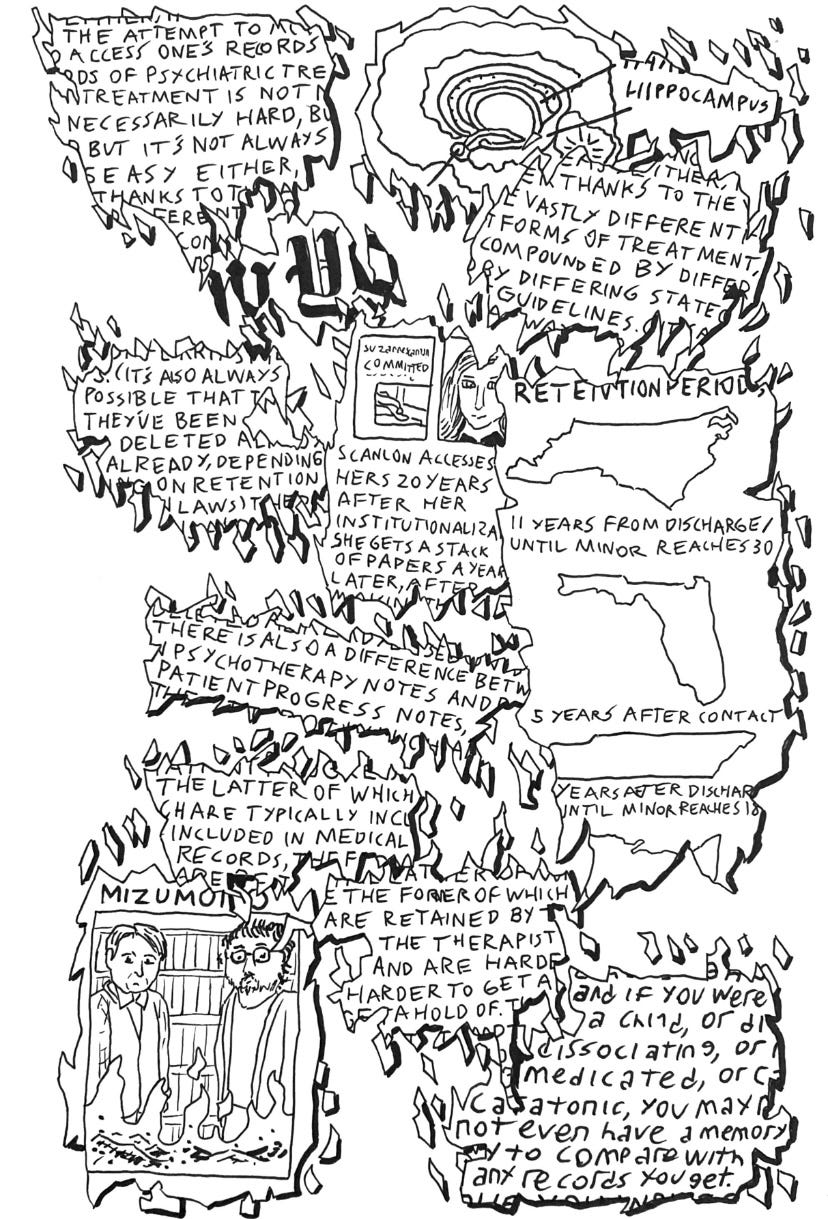 THE ATTEMPT TO
ACCESS ONE'S RECORDS
OF PSYCHIATRIC TRE
NTREATMENT IS NOT N
NECESSARILY HARD, BU
BUT IT'S NOT ALWAYS
S EASY EITHER,
THANKS TO T
FFERENT
HIPPOCAMPUS
EITHER,
THANKS TO THE
VASTLY DIFFERENT
FORMS OF TREATMENT,
COMPOUNDED BY DIFFER
BY DIFFERING STATE
GUIDELINES.
S. (IT'S ALSO ALWAYS
POSSIBLE THAT T
THEY'VE BEEN
DELETED AL
ALREADY, DEPENDING
NG ON RETENTION
LAWS) THE
suzannescanlon
COMMITTED
SCANLON ACCESSES
HERS 20 YEARS
AFTER HER
INSTITUTIONALIZA
SHE GETS A STACK
OF PAPERS A YEAR
LATER, AFTER
RETENTION PERIODS
11 YEARS FROM DISCHARGE/
UNTIL MINOR REACHES 30
5 YEARS AFTER CONTACT
YEARS AFTER DISCHAR
UNTIL MINOR REACHES 18
THERE IS ALSO A DIFFERENCE BETW
N PSYCHOTHERAPY NOTES AND P
PATIENT PROGRESS NOTES,
THE LATTER OF WHICH
CH ARE TYPICALLY INCL
INCLUDED IN MEDICAL
RECORDS, THE F
MIZUMONO
E THE FORMER OF WHICH
ARE RETAINED BY T
THE THERAPIST
AND ARE HARDE
HARDER TO GET A
GET A HOLD OF. T
and if you were
a child, or di
dissociating, or
medicated, or c
catatonic, you may n
not even have a memory
y to compare with
any records you get.